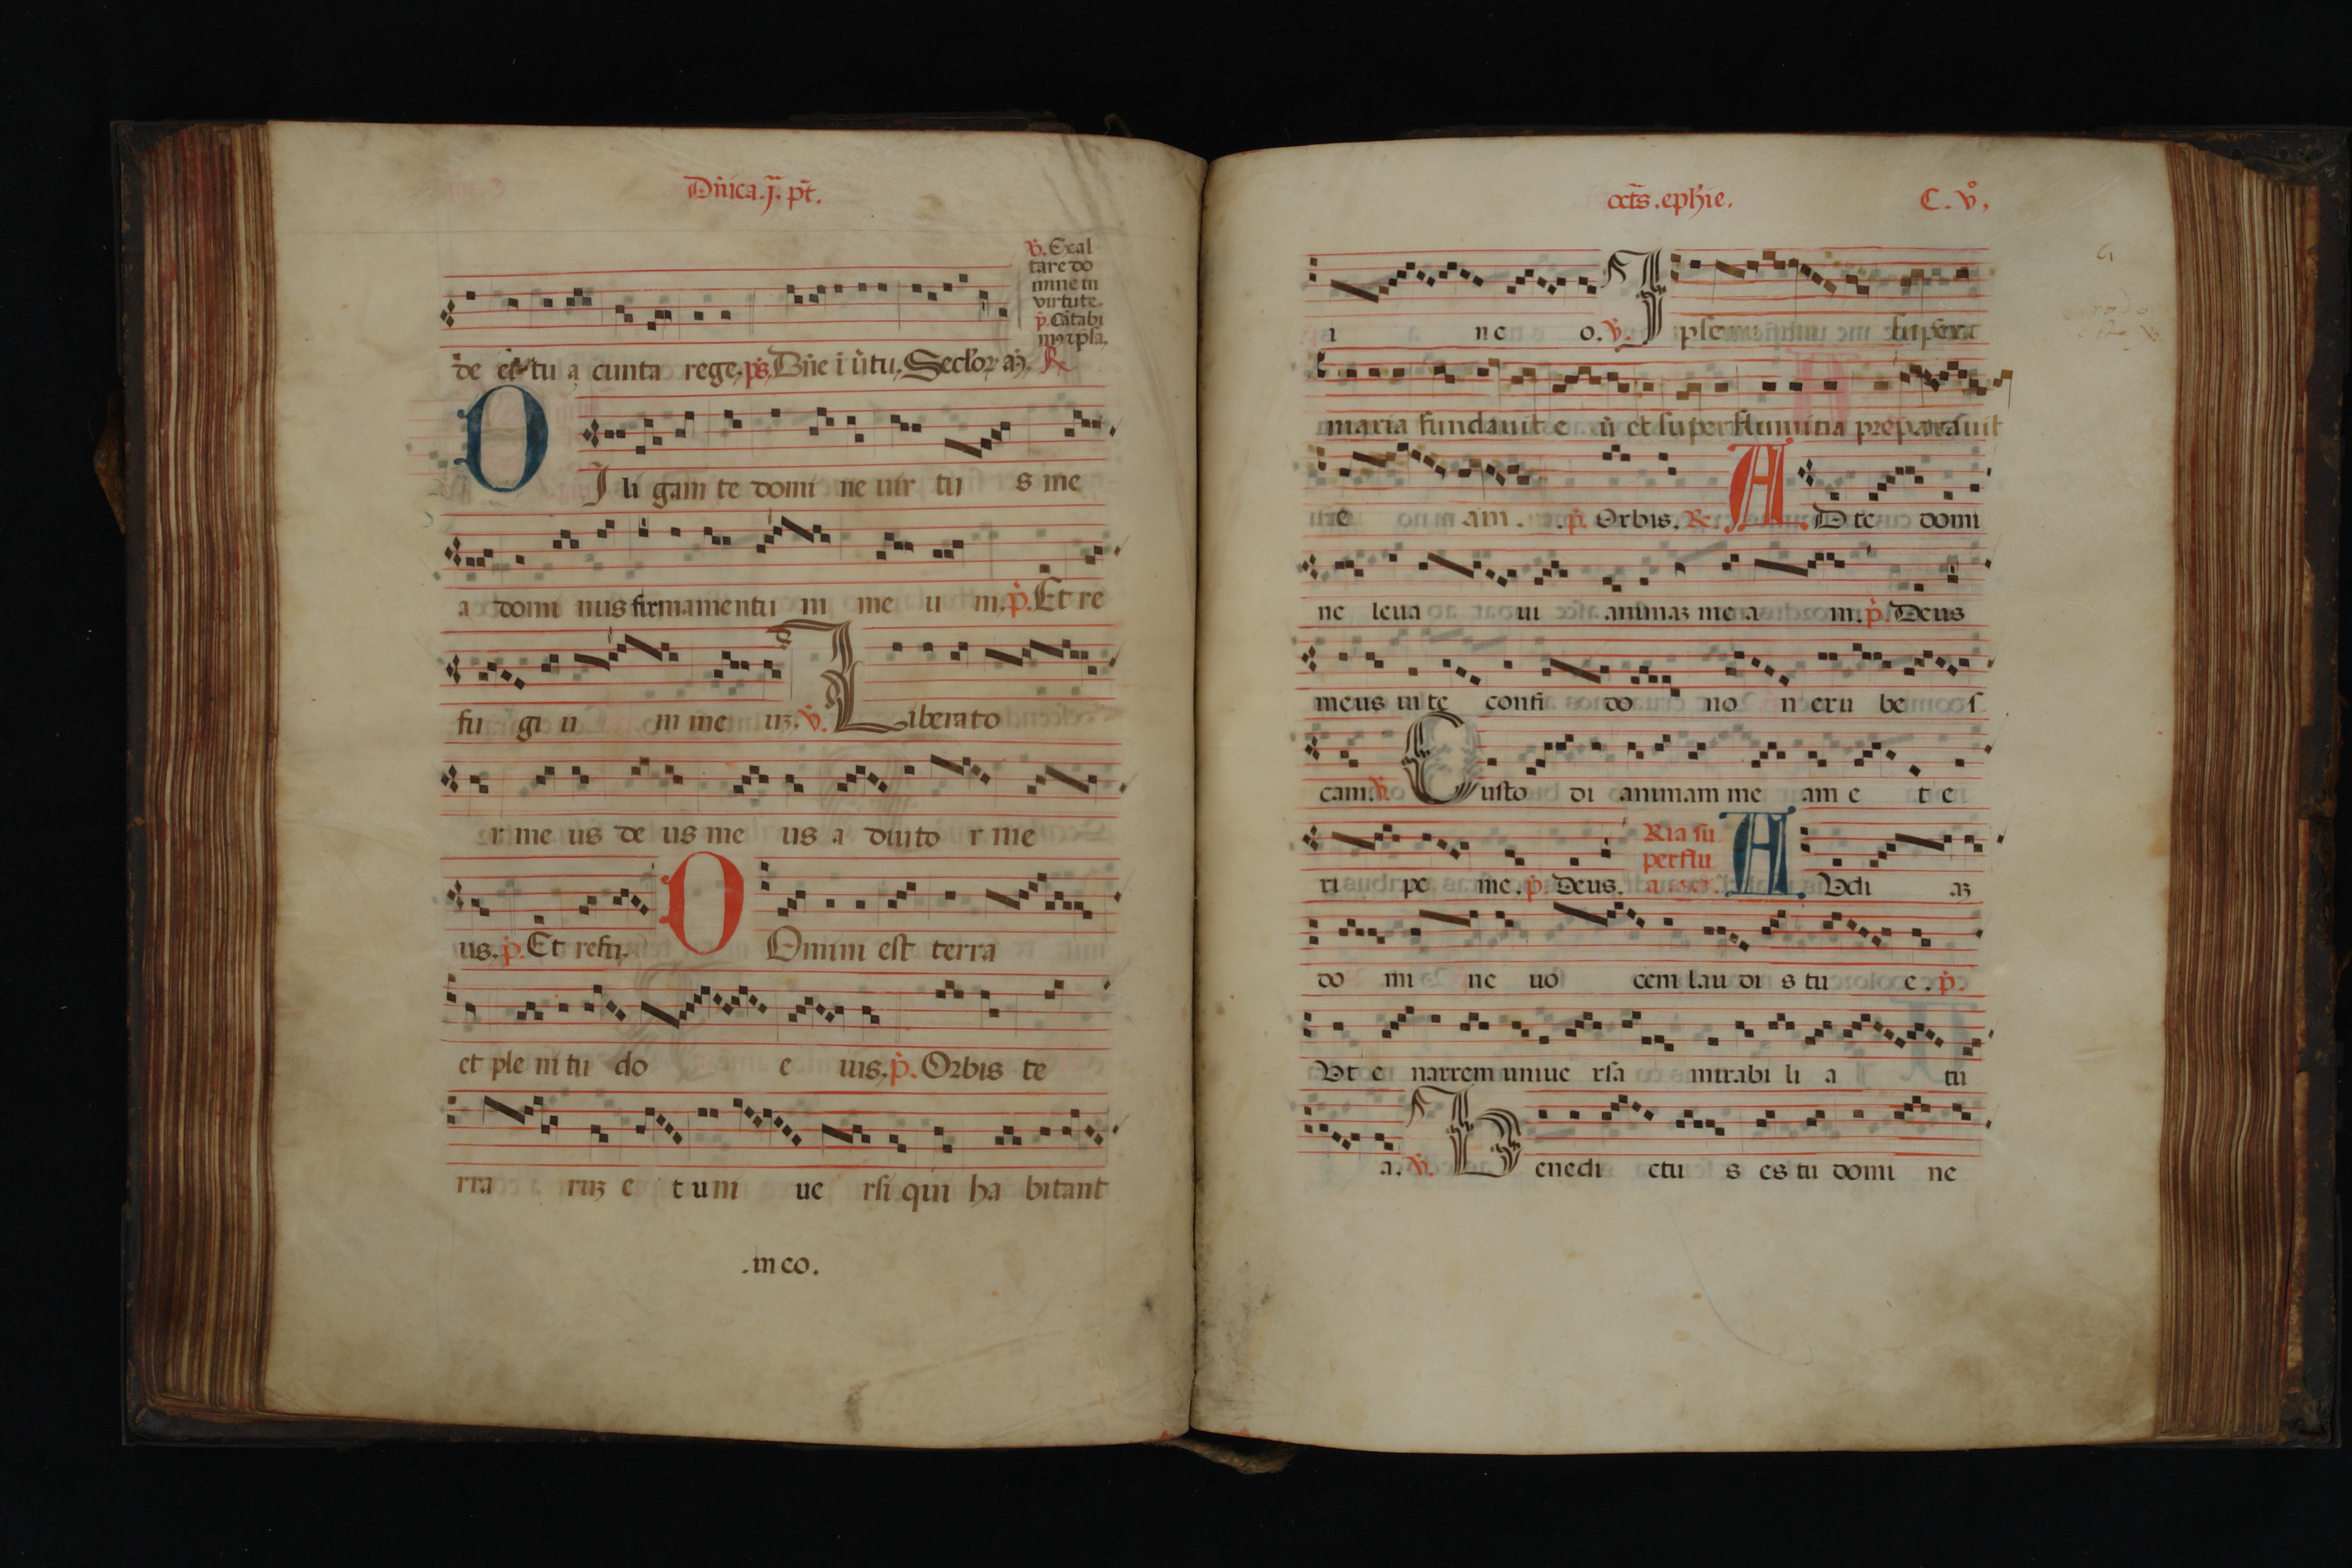 Dn̄ica.j.ͣ pt̄.
℣. Exal
tare do
mine in
virtute.
p̄. Cātabi
de et tu a cunta rege, ps̄, Dn̄e ī ūtu, Seclor a
O
I li gam te domi ne uir tu s me
a domi nus firmamentu m me u m, p̄. Et re
fu gi u m me uꝫ. ℣. L iberato
r me us de us me us a diuto r me
us, p̄. Et refu, D Omini est terra
et ple ni tu do e ius, p̄. Orbis te
rra ruꝫ e t um ue rsi qui ha bitant
.in eo.
oct̄s. ephīe. C. v°,
i n e o. ℣. I pse supera
maria fundauit e ū et super flumina preparauit
e am. p̄. Orbis. ℟. A D te domi
ne leua ui animaꝫ me a m. p̄. Deus
meus in te confi do no n eru be s
cam. ℣. C usto di animam me am e t e
Ria su
perflu
ri pe me. p̄. Deus. A Vdi aꝫ
do mi ne uo cem lau di s tu e. p̄.
Vt e narrem uniue rsa mirabi li a tu
a. ℣. B enedi ctu s es tu domi ne